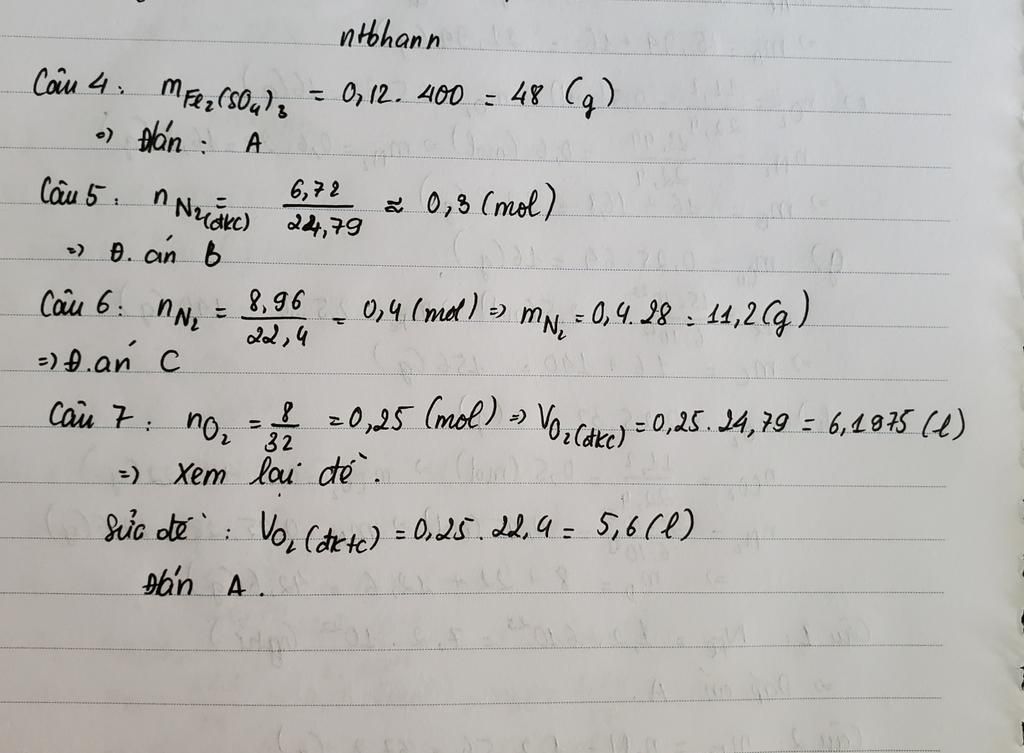 nthbhann
Câu 4 : m Fe₂(SO₄)₃ = 0,12 . 400 = 48 (g)
=> Đán : A
Câu 5 : n N₂(đkc) = 6,72 / 24,79 ≈ 0,3 (mol)
=> Đ. án B
Câu 6 : n N₂ = 8,96 / 22,4 = 0,4 (mol) => m N₂ = 0,4 . 28 = 11,2 (g)
=> Đ.án C
Câu 7 : n O₂ = 8 / 32 = 0,25 (mol) => V O₂(đkc) = 0,25 . 24,79 = 6,1975 (l)
=> Xem lại đề .
Sửa đề : V O₂(đktc) = 0,25 . 22,4 = 5,6 (l)
Đán A .